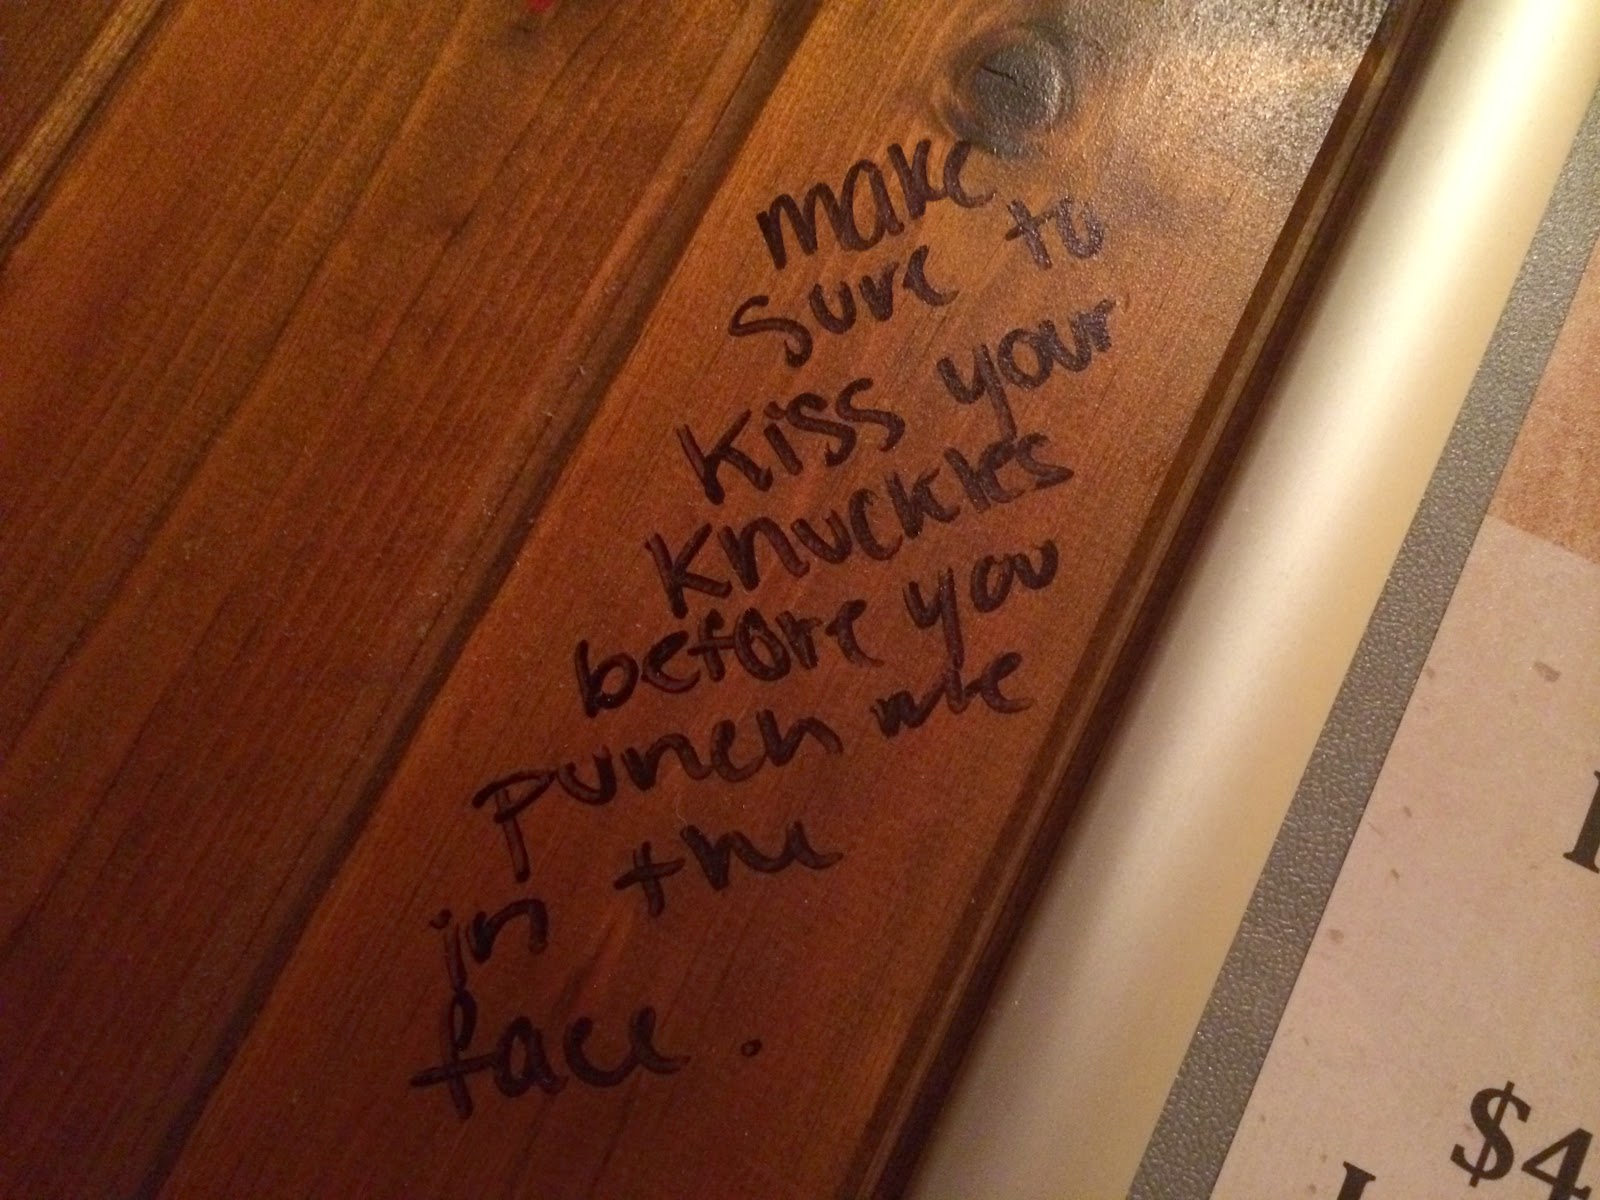 make
sure to
kiss your
knuckles
before you
punch me
in the
face.
$4